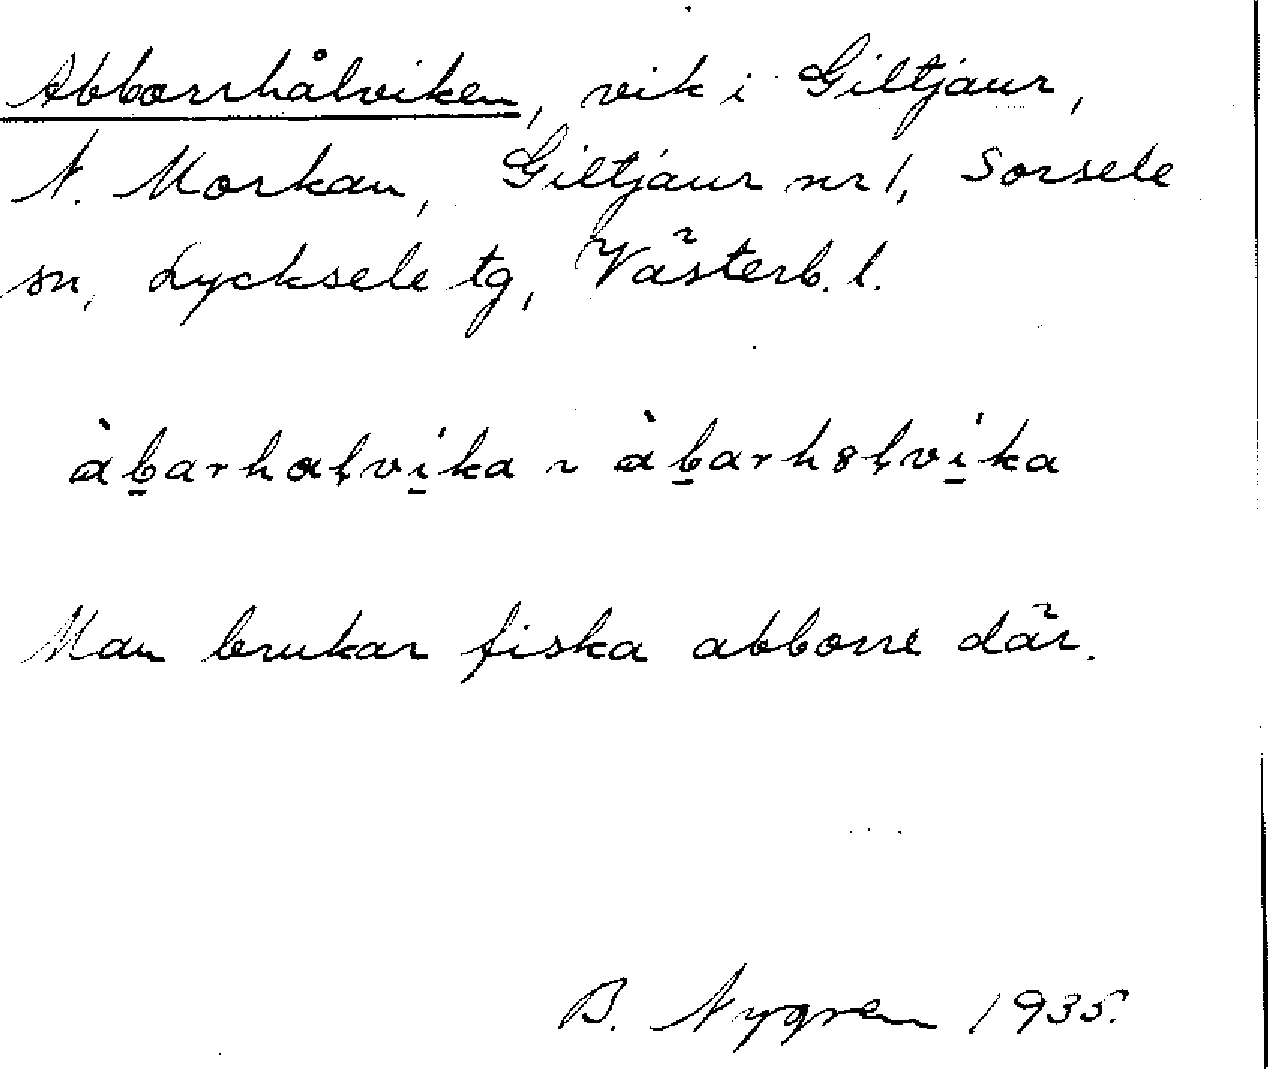 Abborrhålviken, vik i Giltjaur,
N. Morkan, Giltjaur nr 1, Sorsele
sn, Lycksele tg, Västerb. l.
àb̲arhaļvi̲ka ~ àb̲arh8ļvi̲ka
Man brukar fiska abborre där.
B. Nygren 1935.